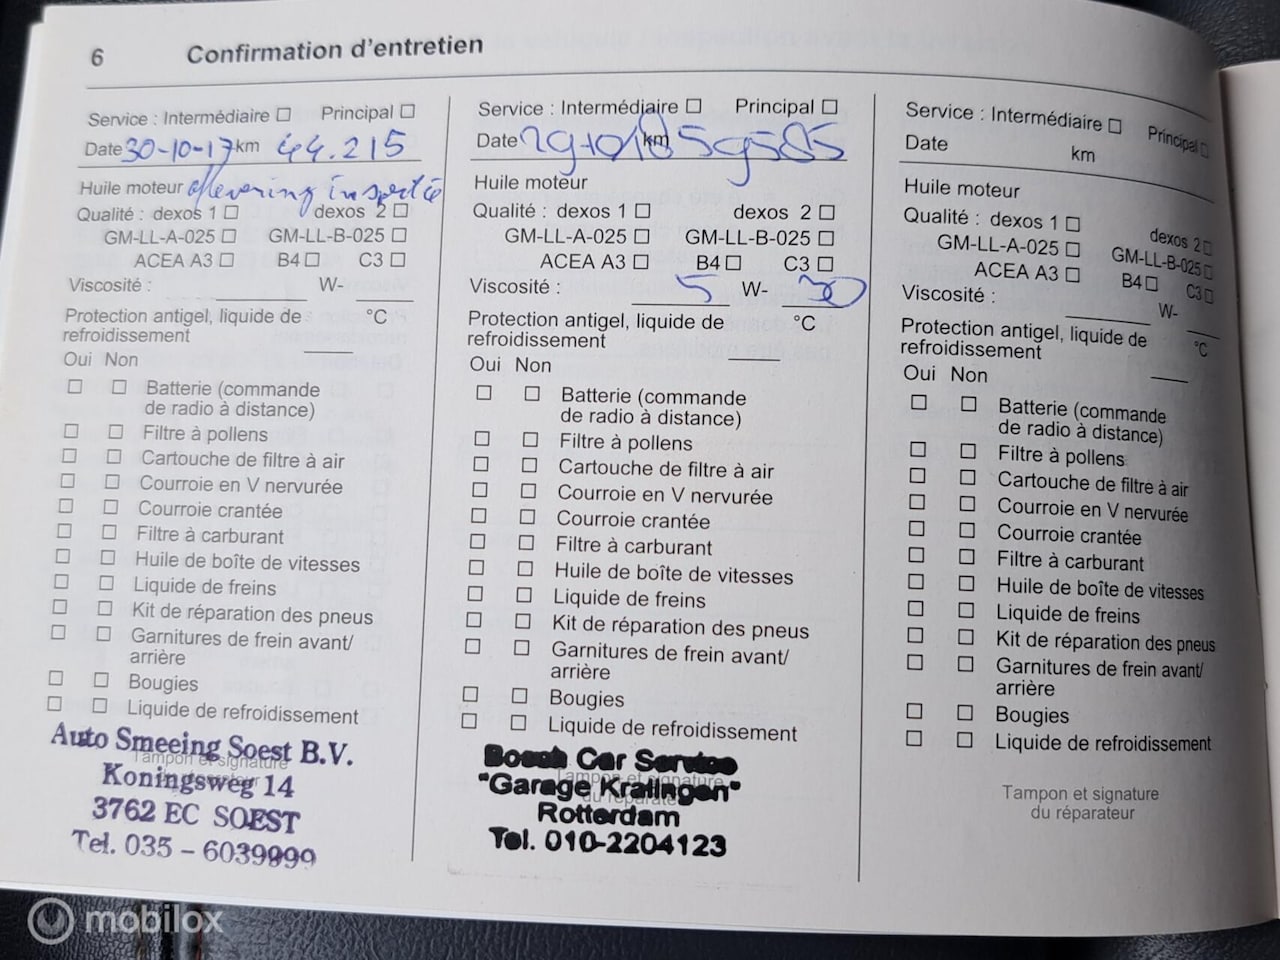 6 Confirmation d'entretien
Service : Intermédiaire ☐ Principal ☐
Date 30-10-17 km 44.215
Huile moteur aflevering inspectie
Qualité : dexos 1 ☐ dexos 2 ☐
GM-LL-A-025 ☐ GM-LL-B-025 ☐
ACEA A3 ☐ B4 ☐ C3 ☐
Viscosité : W-
Protection antigel, liquide de °C
refroidissement
Oui Non
☐ ☐ Batterie (commande
de radio à distance)
☐ ☐ Filtre à pollens
☐ ☐ Cartouche de filtre à air
☐ ☐ Courroie en V nervurée
☐ ☐ Courroie crantée
☐ ☐ Filtre à carburant
☐ ☐ Huile de boîte de vitesses
☐ ☐ Liquide de freins
☐ ☐ Kit de réparation des pneus
☐ ☐ Garnitures de frein avant/
arrière
☐ ☐ Bougies
☐ ☐ Liquide de refroidissement
Tampon et signature
Auto Smeeing Soest B.V.
Koningsweg 14
3762 EC SOEST
Tel. 035 - 6039999
Service : Intermédiaire ☐ Principal ☐
Date 29-10-18 km 59585
Huile moteur
Qualité : dexos 1 ☐ dexos 2 ☐
GM-LL-A-025 ☐ GM-LL-B-025 ☐
ACEA A3 ☐ B4 ☐ C3 ☐
Viscosité : 5 W- 30
Protection antigel, liquide de °C
refroidissement
Oui Non
☐ ☐ Batterie (commande
de radio à distance)
☐ ☐ Filtre à pollens
☐ ☐ Cartouche de filtre à air
☐ ☐ Courroie en V nervurée
☐ ☐ Courroie crantée
☐ ☐ Filtre à carburant
☐ ☐ Huile de boîte de vitesses
☐ ☐ Liquide de freins
☐ ☐ Kit de réparation des pneus
☐ ☐ Garnitures de frein avant/
arrière
☐ ☐ Bougies
☐ ☐ Liquide de refroidissement
Tampon et signature
du réparateur
Bosch Car Service
"Garage Kralingen"
Rotterdam
Tel. 010-2204123
Service : Intermédiaire ☐ Principal ☐
Date km
Huile moteur
Qualité : dexos 1 ☐ dexos 2 ☐
GM-LL-A-025 ☐ GM-LL-B-025 ☐
ACEA A3 ☐ B4 ☐ C3 ☐
Viscosité : W-
Protection antigel, liquide de °C
refroidissement
Oui Non
☐ ☐ Batterie (commande
de radio à distance)
☐ ☐ Filtre à pollens
☐ ☐ Cartouche de filtre à air
☐ ☐ Courroie en V nervurée
☐ ☐ Courroie crantée
☐ ☐ Filtre à carburant
☐ ☐ Huile de boîte de vitesses
☐ ☐ Liquide de freins
☐ ☐ Kit de réparation des pneus
☐ ☐ Garnitures de frein avant/
arrière
☐ ☐ Bougies
☐ ☐ Liquide de refroidissement
Tampon et signature
du réparateur
mobilox